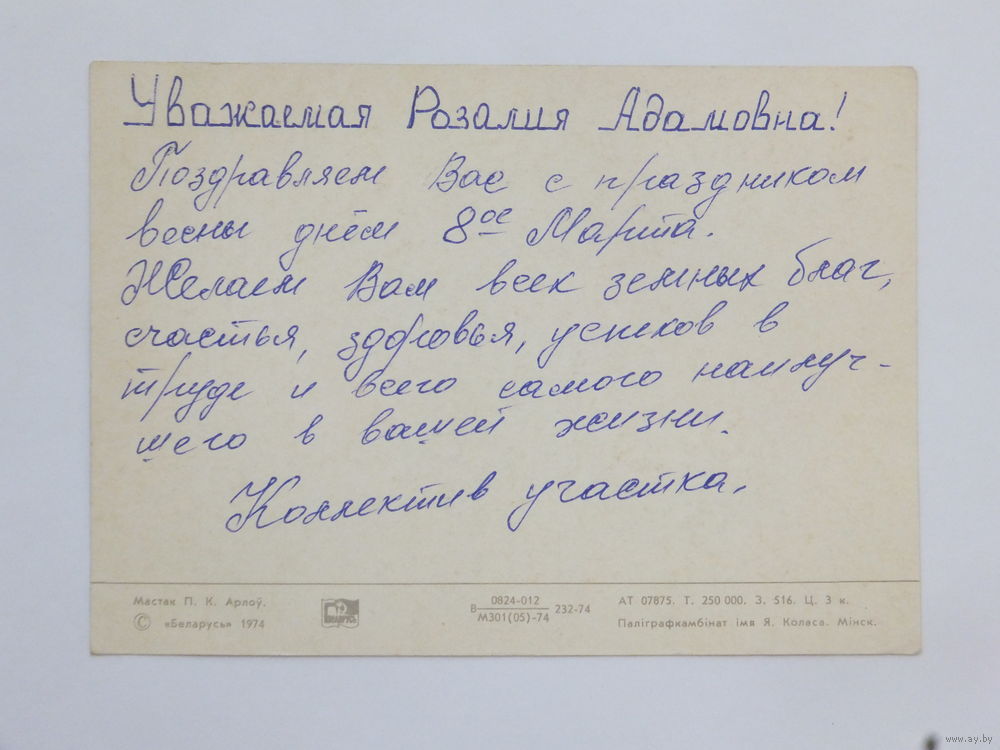 Уважаемая Розалия Адамовна!
Поздравляем Вас с праздником
весны днём 8ое Марта.
Желаем Вам всех земных благ,
счастья, здоровья, успехов в
труде и всего самого наилуч-
шего в вашей жизни.
Коллектив участка.
Мастак П. К. Арлоў.
© «Беларусь» 1974
БЕЛАРУСЬ
В 0824-012 / М301(05)-74 232-74
АТ 07875. Т. 250 000. З. 516. Ц. 3 к.
Паліграфкамбінат імя Я. Коласа. Мінск.
www.ay.by